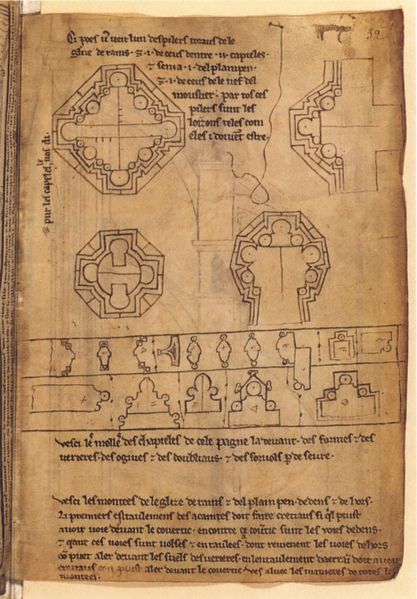 Ci poes vir lun des pilers toraus de le
glize de rains · ⁊ · i · de ceus dentre · ii · capieles ·
⁊ sen i a · i · del plain pen ·
⁊ · i · de ceus de le nef del
moustier · par tos ces
pilers sunt les
loizons teles com
eles i doivent estre ·
par les capeles
vesci les molles des chapieles de cele pagne la devant · des formes ⁊ des
verieres · des ogives ⁊ des doubliaus · ⁊ des sorvols par deseure ·
vesci les montees de le glize de rains ⁊ del plain pen · dedens ⁊ de hors ·
li premiers estaulemens des acaintes doit faire cretiaus si quil puist
avoir voie devant le covertic · encontre ce covertic sunt les voies dedens ·
⁊ quant ces voies sunt volses ⁊ entaulees · dont revienent les voies dehors
com puet aler devant les suels des verieres · en lentaulement daerrain doit avoir
cretiaus com puist aler devant le covertic · ves aluec les manieres de totes les
montees ·
32